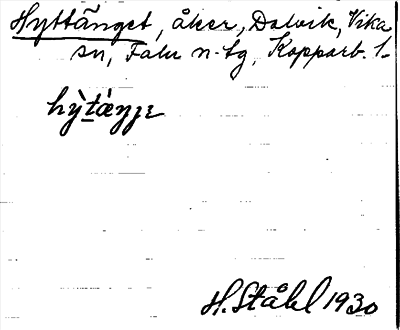 Hyttänget, åker, Dalvik, Vika
sn, Falu n. tg, Kopparb. l.
hỳtæ̀ŋjɛ
H. Ståhl 1930